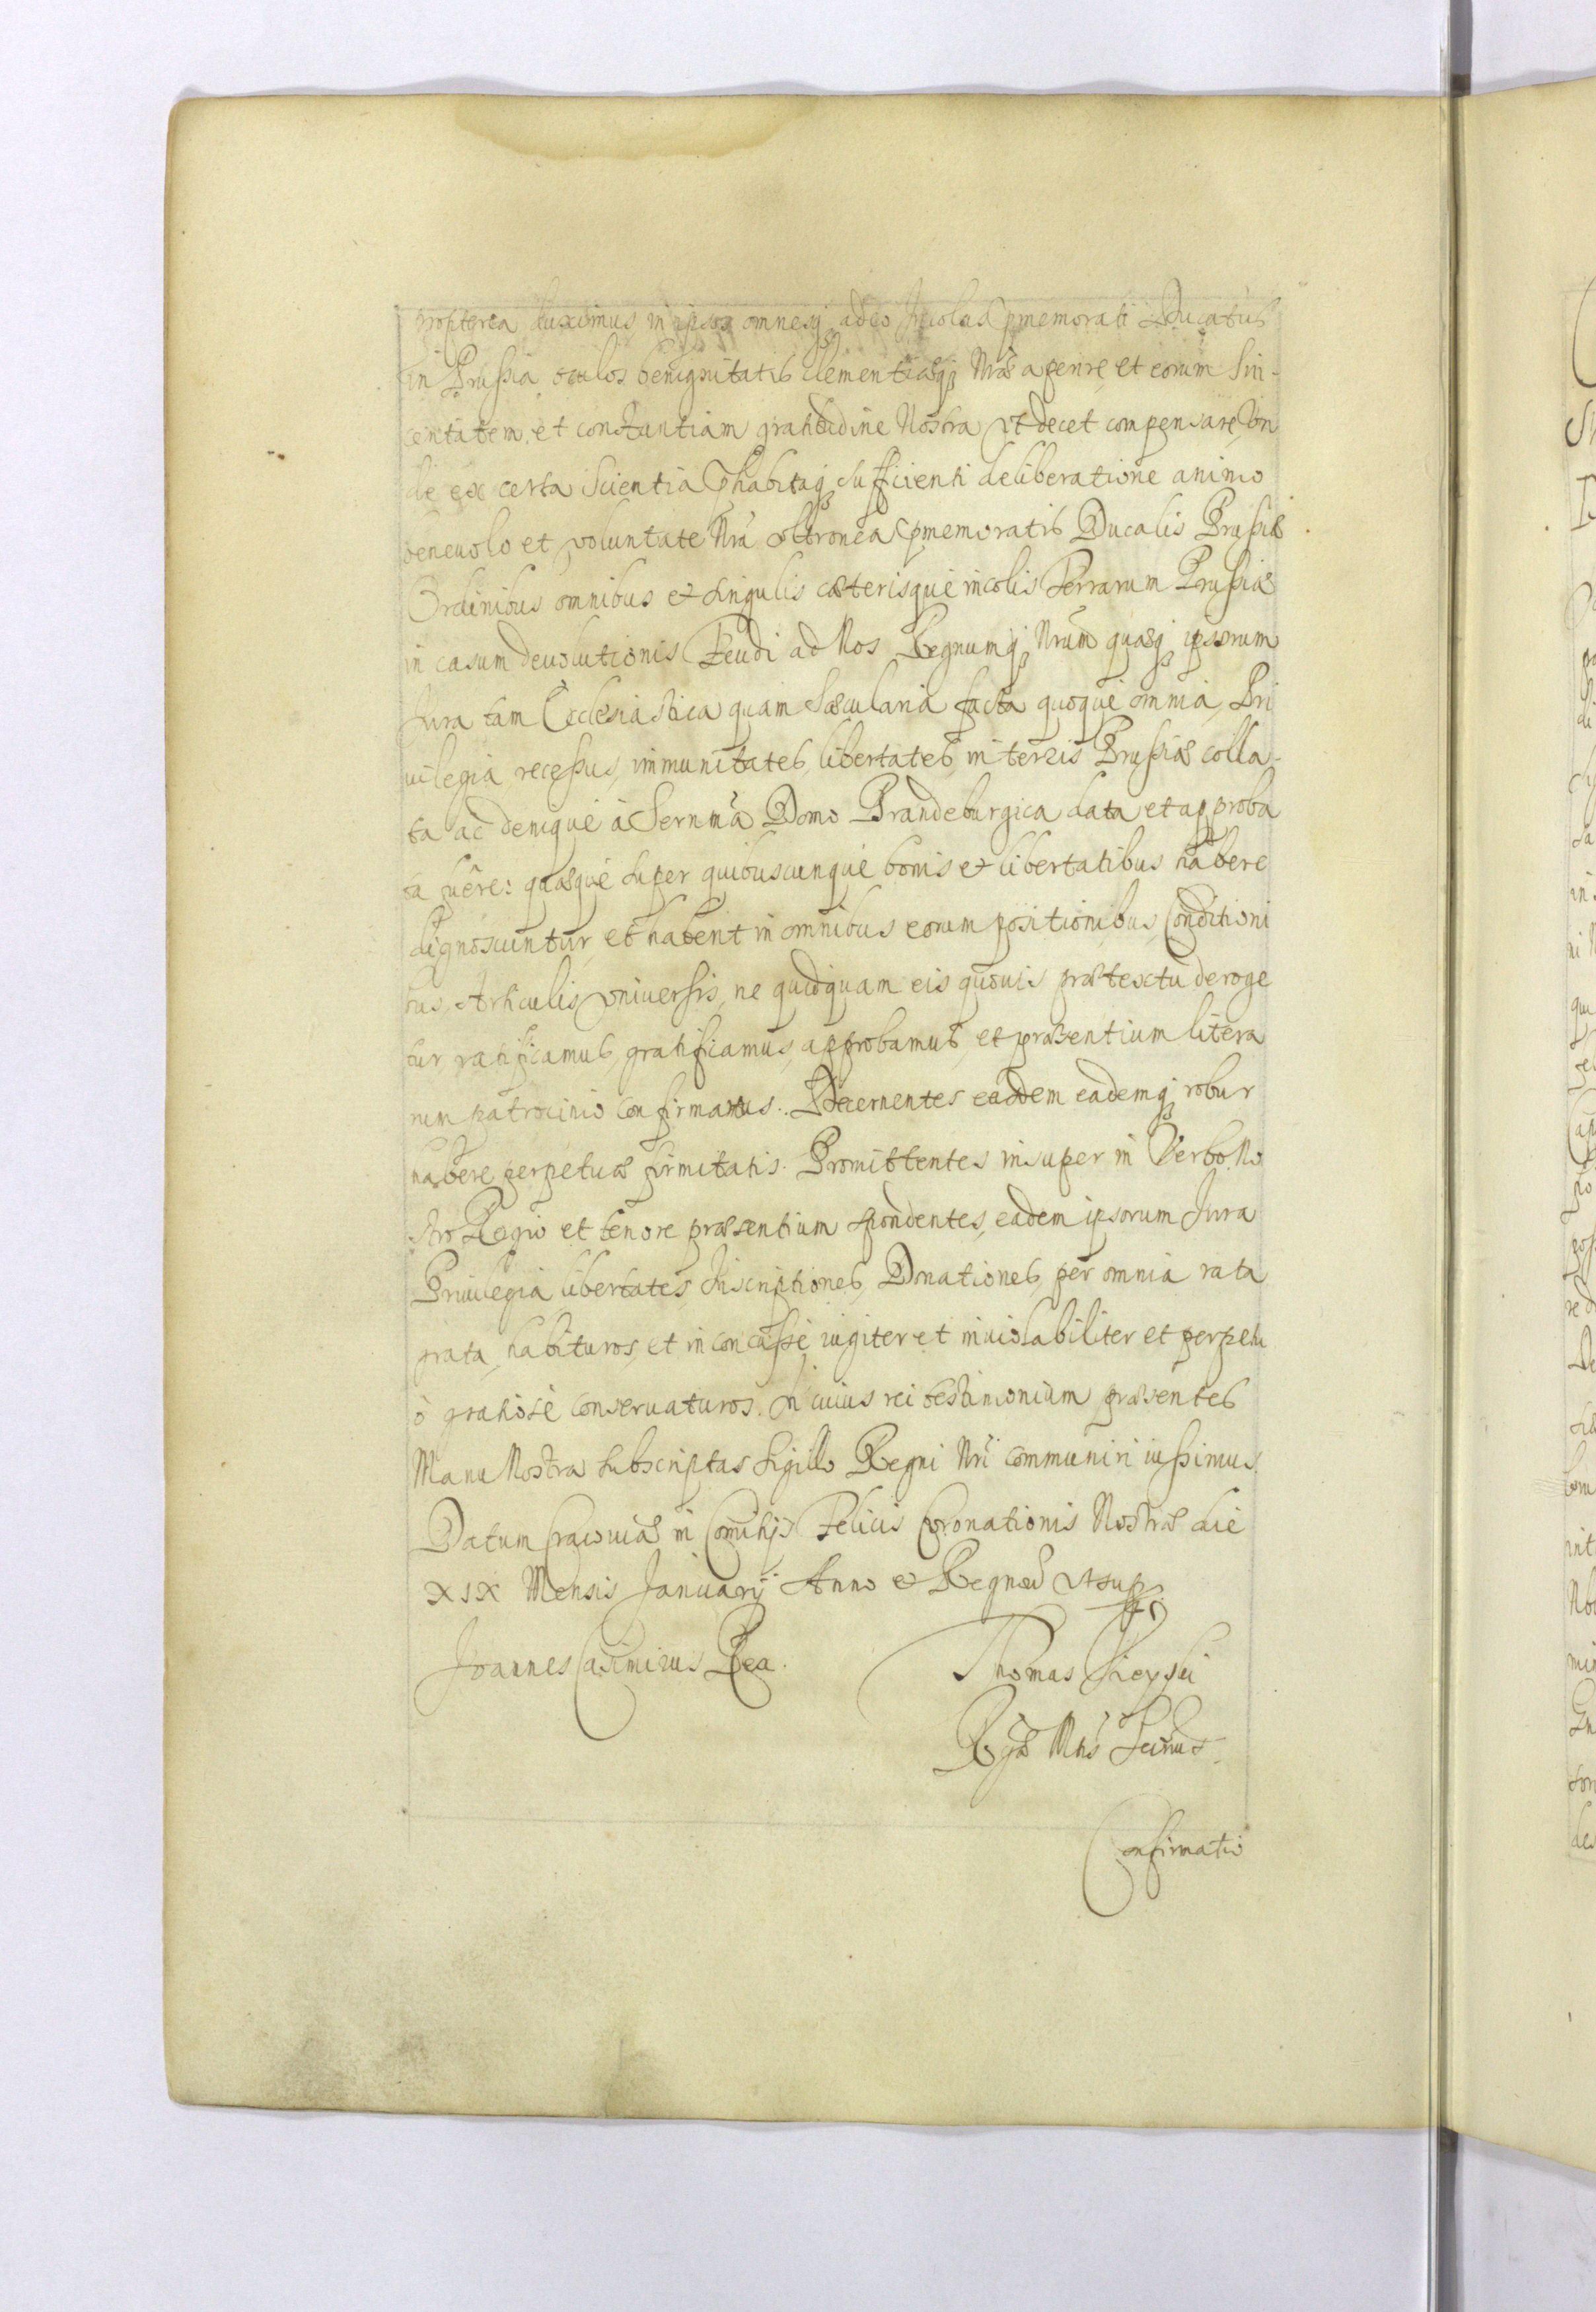 propterea duximus in ipsos omnesq adeo Incolas pmemorati Ducatus
in Prussia oculos benignitatis clementiaeq Nrae apenre, et eorum Sin-
ceritatem, et constantiam gratitudine Nostra ut decet compensare, Vn
de ex certa Scientia habitaq sufficienti deliberatione animo
beneuolo et voluntate Nrã vltronea pmemoratis Ducalis Prussiae
Ordinibus omnibus et singulis caeterisque incolis Terrarum Prussiae
in casum deuolutionis Feudi ad Nos Regnumq Nrum quaeq ipsorum
Jura tam Ecclesiastica quam Saecularia facta quoque omnia, Pri
uilegia recessus, immunitates, libertates, in terris Prussiae colla-
ta ac denique à Sernma Domo Brandeburgica data et approba
ta fuêre: quaeque super quibuscunque bonis et libertatibus habere
dignoscuntur, et habent in omnibus eorum positionibus, Conditioni
bus, Articulis vniuersis, ne quidquam eis quouis praetextu deroge
tur, ratificamus, gratificamus, approbamus, et praesentium litera
rum patrocinio confirmamus. Decernentes eadem eademq robur
habere perpetuae firmitatis. Promittentes insuper in Verbo No
stro Regio et tenore praesentium spondentes, eadem ipsorum Jura
Priuilegia libertates, Inscriptiones, Donationes, per omnia rata
grata, habituros, et inconcusse iugiter et inuiolabiliter et perpetu
ò gratiosè conseruaturos. In cuius rei testimonium praesentes
Manu Nostra subscriptas Sigillo Regni Nri communiri iussimus.
Datum Cracouiae in Comitijs Felicis Coronationis Nostrae die
XIX Mensis Januarij Anno et Regnoru vt sup
Joannes Casimirus Rex.
Thomas
Rgiae Mtis
Confirmatio